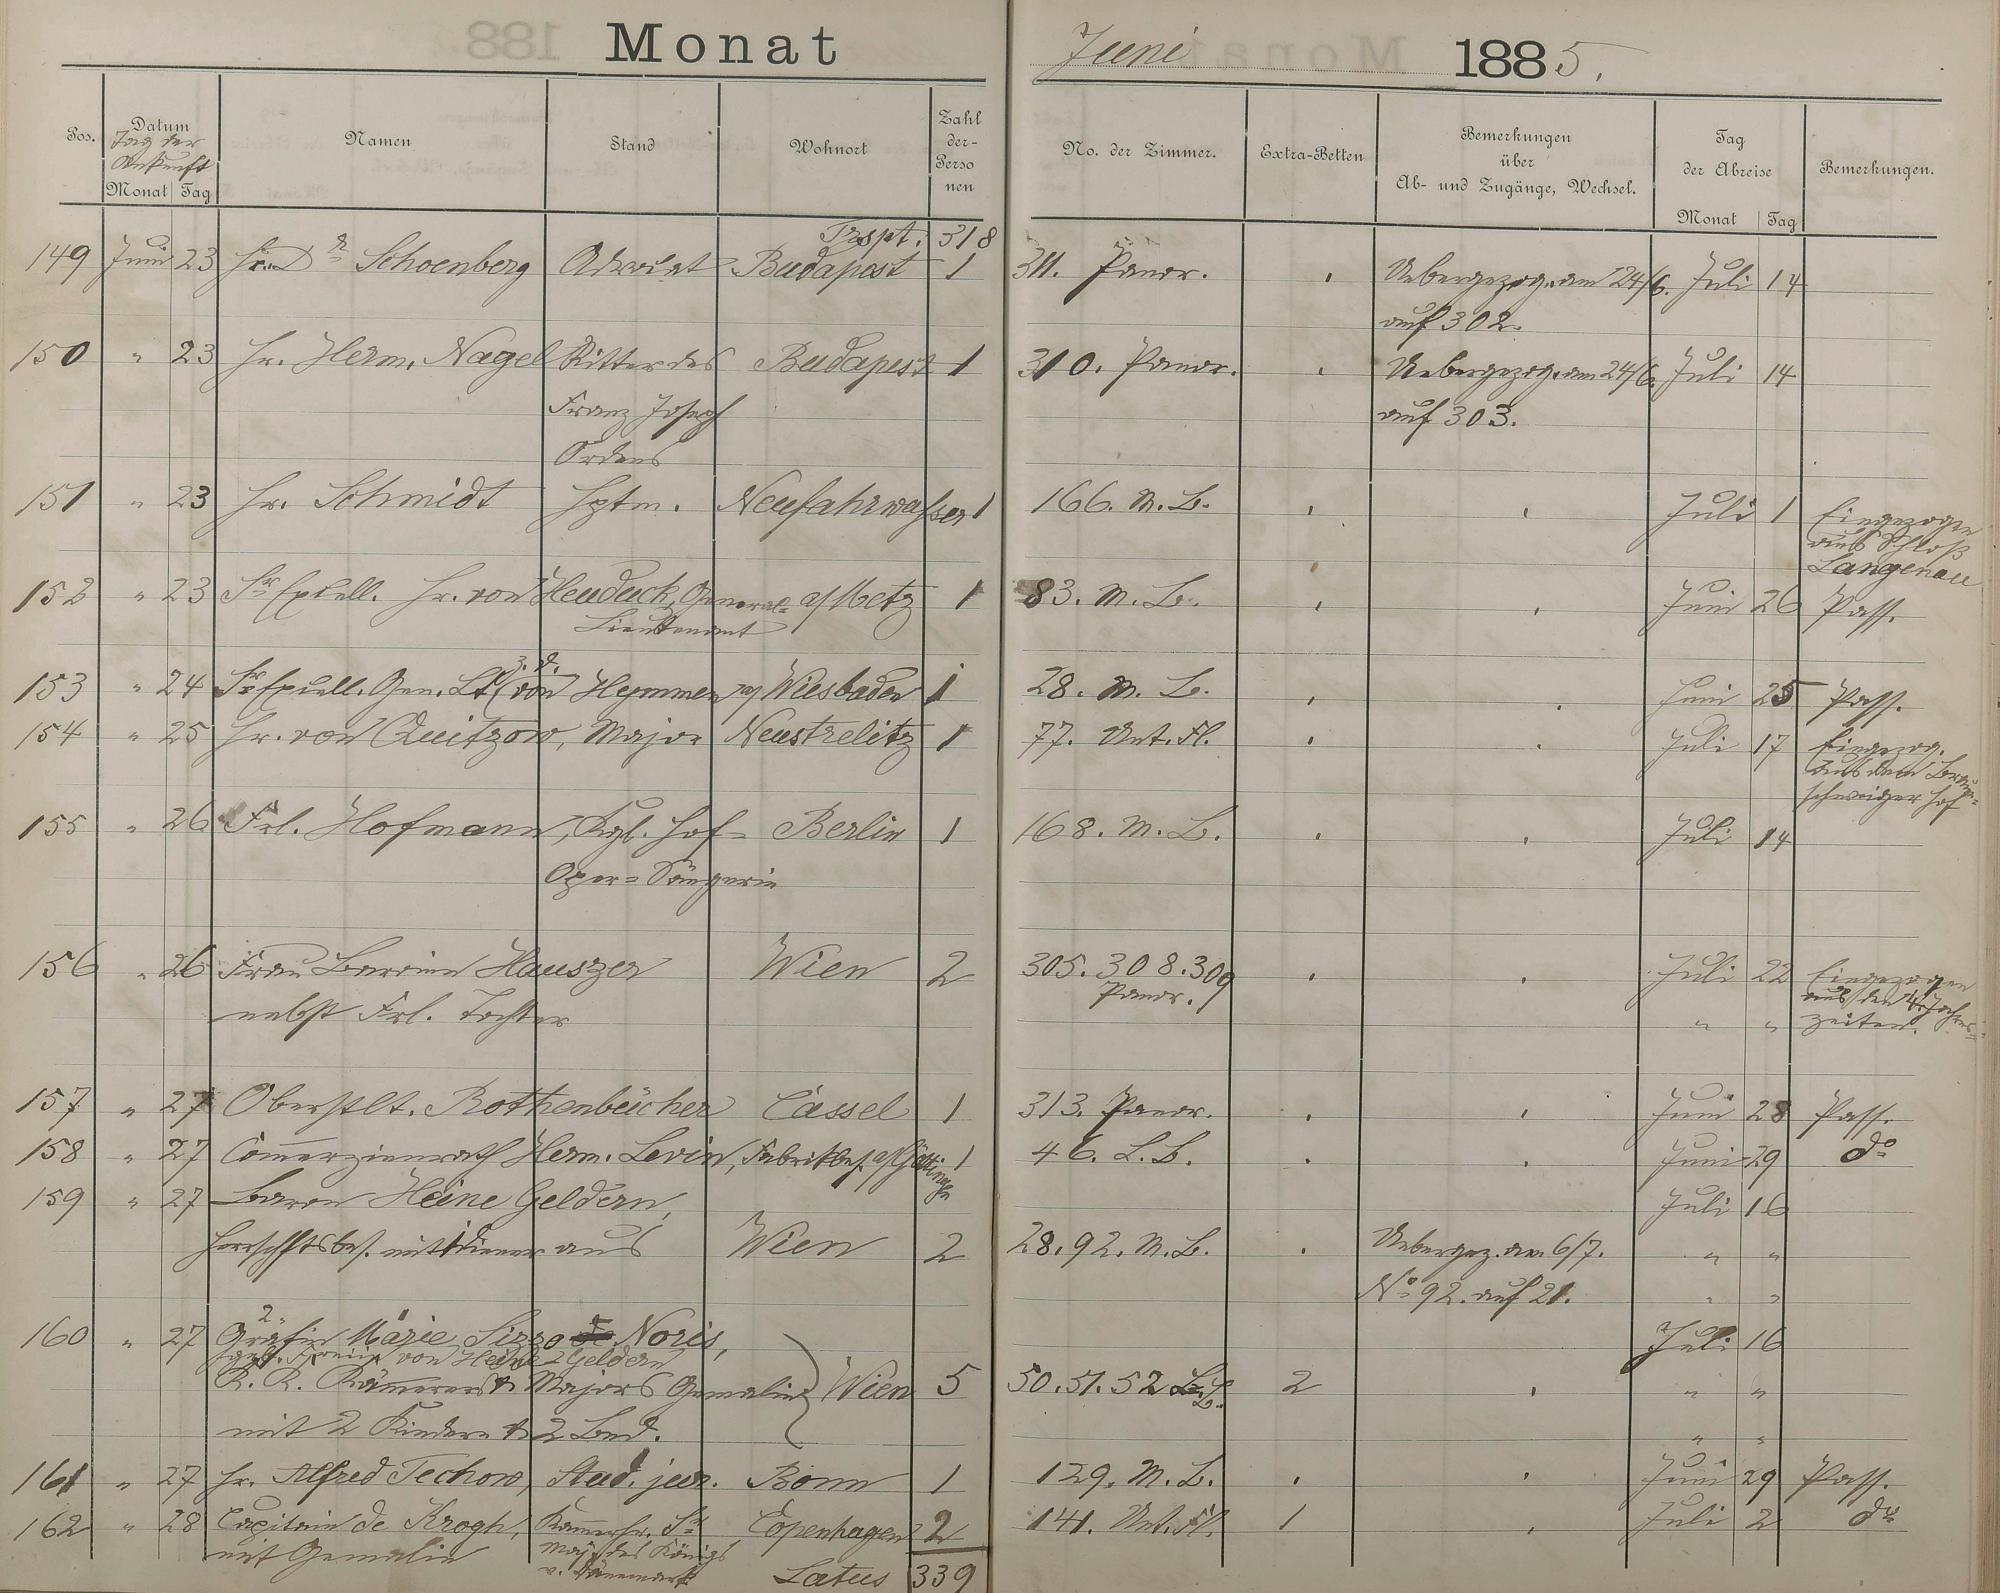 Monat
Juni 1885.
Pos. Datum Namen Stand Wohnort Zahl der Personen
Tag der Ankunft
Monat Tag
No. der Zimmer. Extra-Betten Bemerkungen über Ab- und Zugänge, Wechsel. Tag der Abreise Bemerkungen.
Monat Tag
Trspt. 318
149 Juni 23 Hr. Dr Schoenberg Advocat Budapest 1 311. Panor. Uebergezog. am 24/6. Juli 14
auf 302.
150 " 23 Hr. Herm. Nagel Ritter des Budapest 1 310. Panor. Uebergezog. am 24/6. Juli 14
Franz Joseph auf 303.
Ordens
151 " 23 Hr. Schmidt Hptm. Neufahrwasser 1 166. M. B. Juli 1 Eingezogen
aus Schloß
Langenau
152 " 23 Sr Excell. Hr. von Heuduck, General- a/Metz 1 83. M. B. Juni 26 Pass.
Lieutenant
153 " 24 Sr Excell. Gen. Lt z. d. von Hymmen a/ Wiesbaden 1 28. M. B. Juni 25 Pass.
154 " 25 Hr. von Quitzow, Major Neustrelitz 1 77. Unt. Fl. Juli 17 Eingezog.
aus dem Braun-
schweiger Hof
155 " 26 Frl. Hofmann, Kgl. Hof- Berlin 1 168. M. B. Juli 14
Oper-Sängerin
156 " 26 Frau Baronin Hauszer Wien 2 305. 308. 309 Juli 22 Eingezogen
Panor. aus den 4 Jahres-
nebst Frl. Tochter " " zeiten.
157 " 27 Oberstlt. Rothenbücher Cassel 1 313. Panor. Juni 28 Pass.
158 " 27 Commerzienrath Herm. Levin, Fabrikbes. a/Göttingen 1 46. L. B. Juni 29 do
159 " 27 Baron Heine Geldern, Juli 16
Herrschftsbes. mit Diener aus Wien 2 28. 92. M. B. Uebergez. am 6/7. " "
No 92. auf 21. " "
160 " 27 Gräfin Marie Sizzo de Noris, Juli 16
geb. Freiin von Heine Geldern
K. K. Kämmerers & Majors Gemalin Wien 5 50. 51. 52 L. B. 2 " "
mit 2 Kindern & 2 Bed. " "
161 " 27 Hr. Alfred Techow, Stud. jur. Bonn 1 129. M. B. Juni 29 Pass.
162 " 28 Capitain de Krogh, Kammerhr. Sr Copenhagen 2 141. Unt. Fl. 1 Juli 2 do
mit Gemalin Maj. des Königs
v. Dänemark
Latus 339